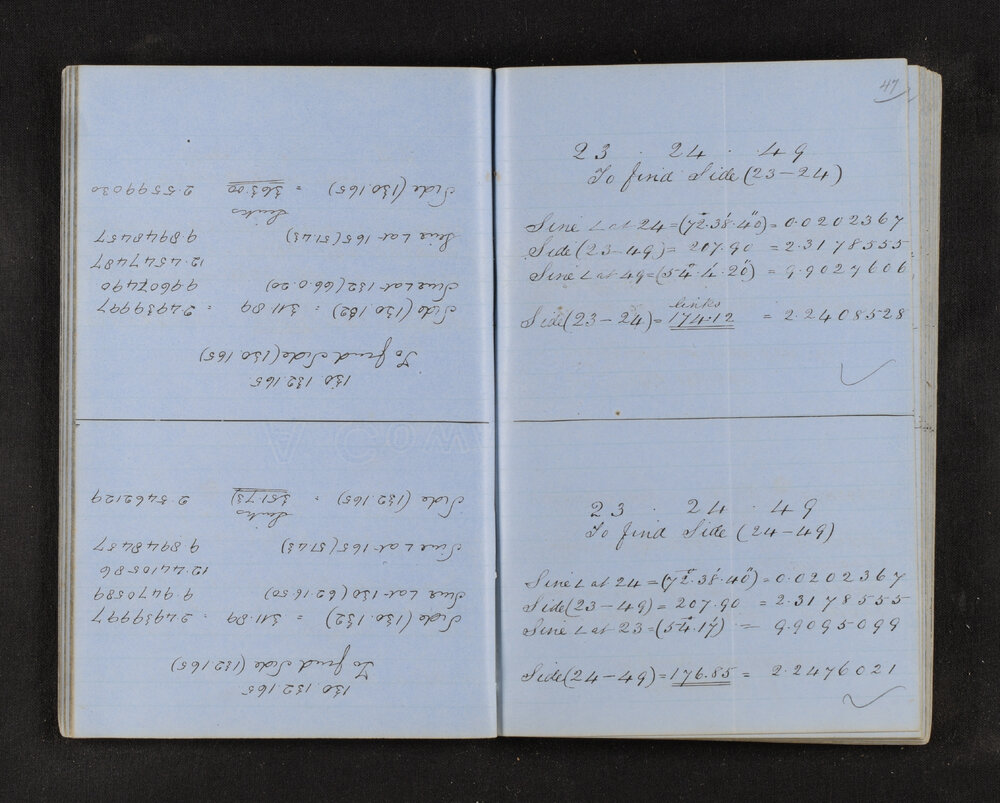 47
23 . 24 . 49
To find Side (23–24)
Sine ∠ at 24 = (72°.38'.40") = 0.0202367
Side (23–49) = 207.90 = 2.3178555
Sine ∠ at 49 = (54°.4'.20") = 9.9027606
links
Side (23–24) = 174.12 = 2.2408528
23 . 24 . 49
To find Side (24–49)
Sine ∠ at 24 = (72°.38'.40") = 0.0202367
Side (23–49) = 207.90 = 2.3178555
Sine ∠ at 23 = (54°.17') = 9.9095099
Side (24–49) = 176.85 = 2.2476021
130.132.165
To find Side (132.165)
Side (130.132) = 311.89 = 2.4939997
Sine ∠ at 130 (62.16.50) 9.9470589
12.4410586
Sine ∠ at 165 (51.43) 9.8948457
Links
Side (132.165) = 351.73 2.5462129
130 132.165
To find Side (130.165)
Side (130.132) = 311.89 = 2.4939997
Sine ∠ at 132 (66.0.20) 9.9607490
12.4547487
Sine ∠ at 165 (51.43) 9.8948457
Links
Side (130.165) = 363.00 2.5599030